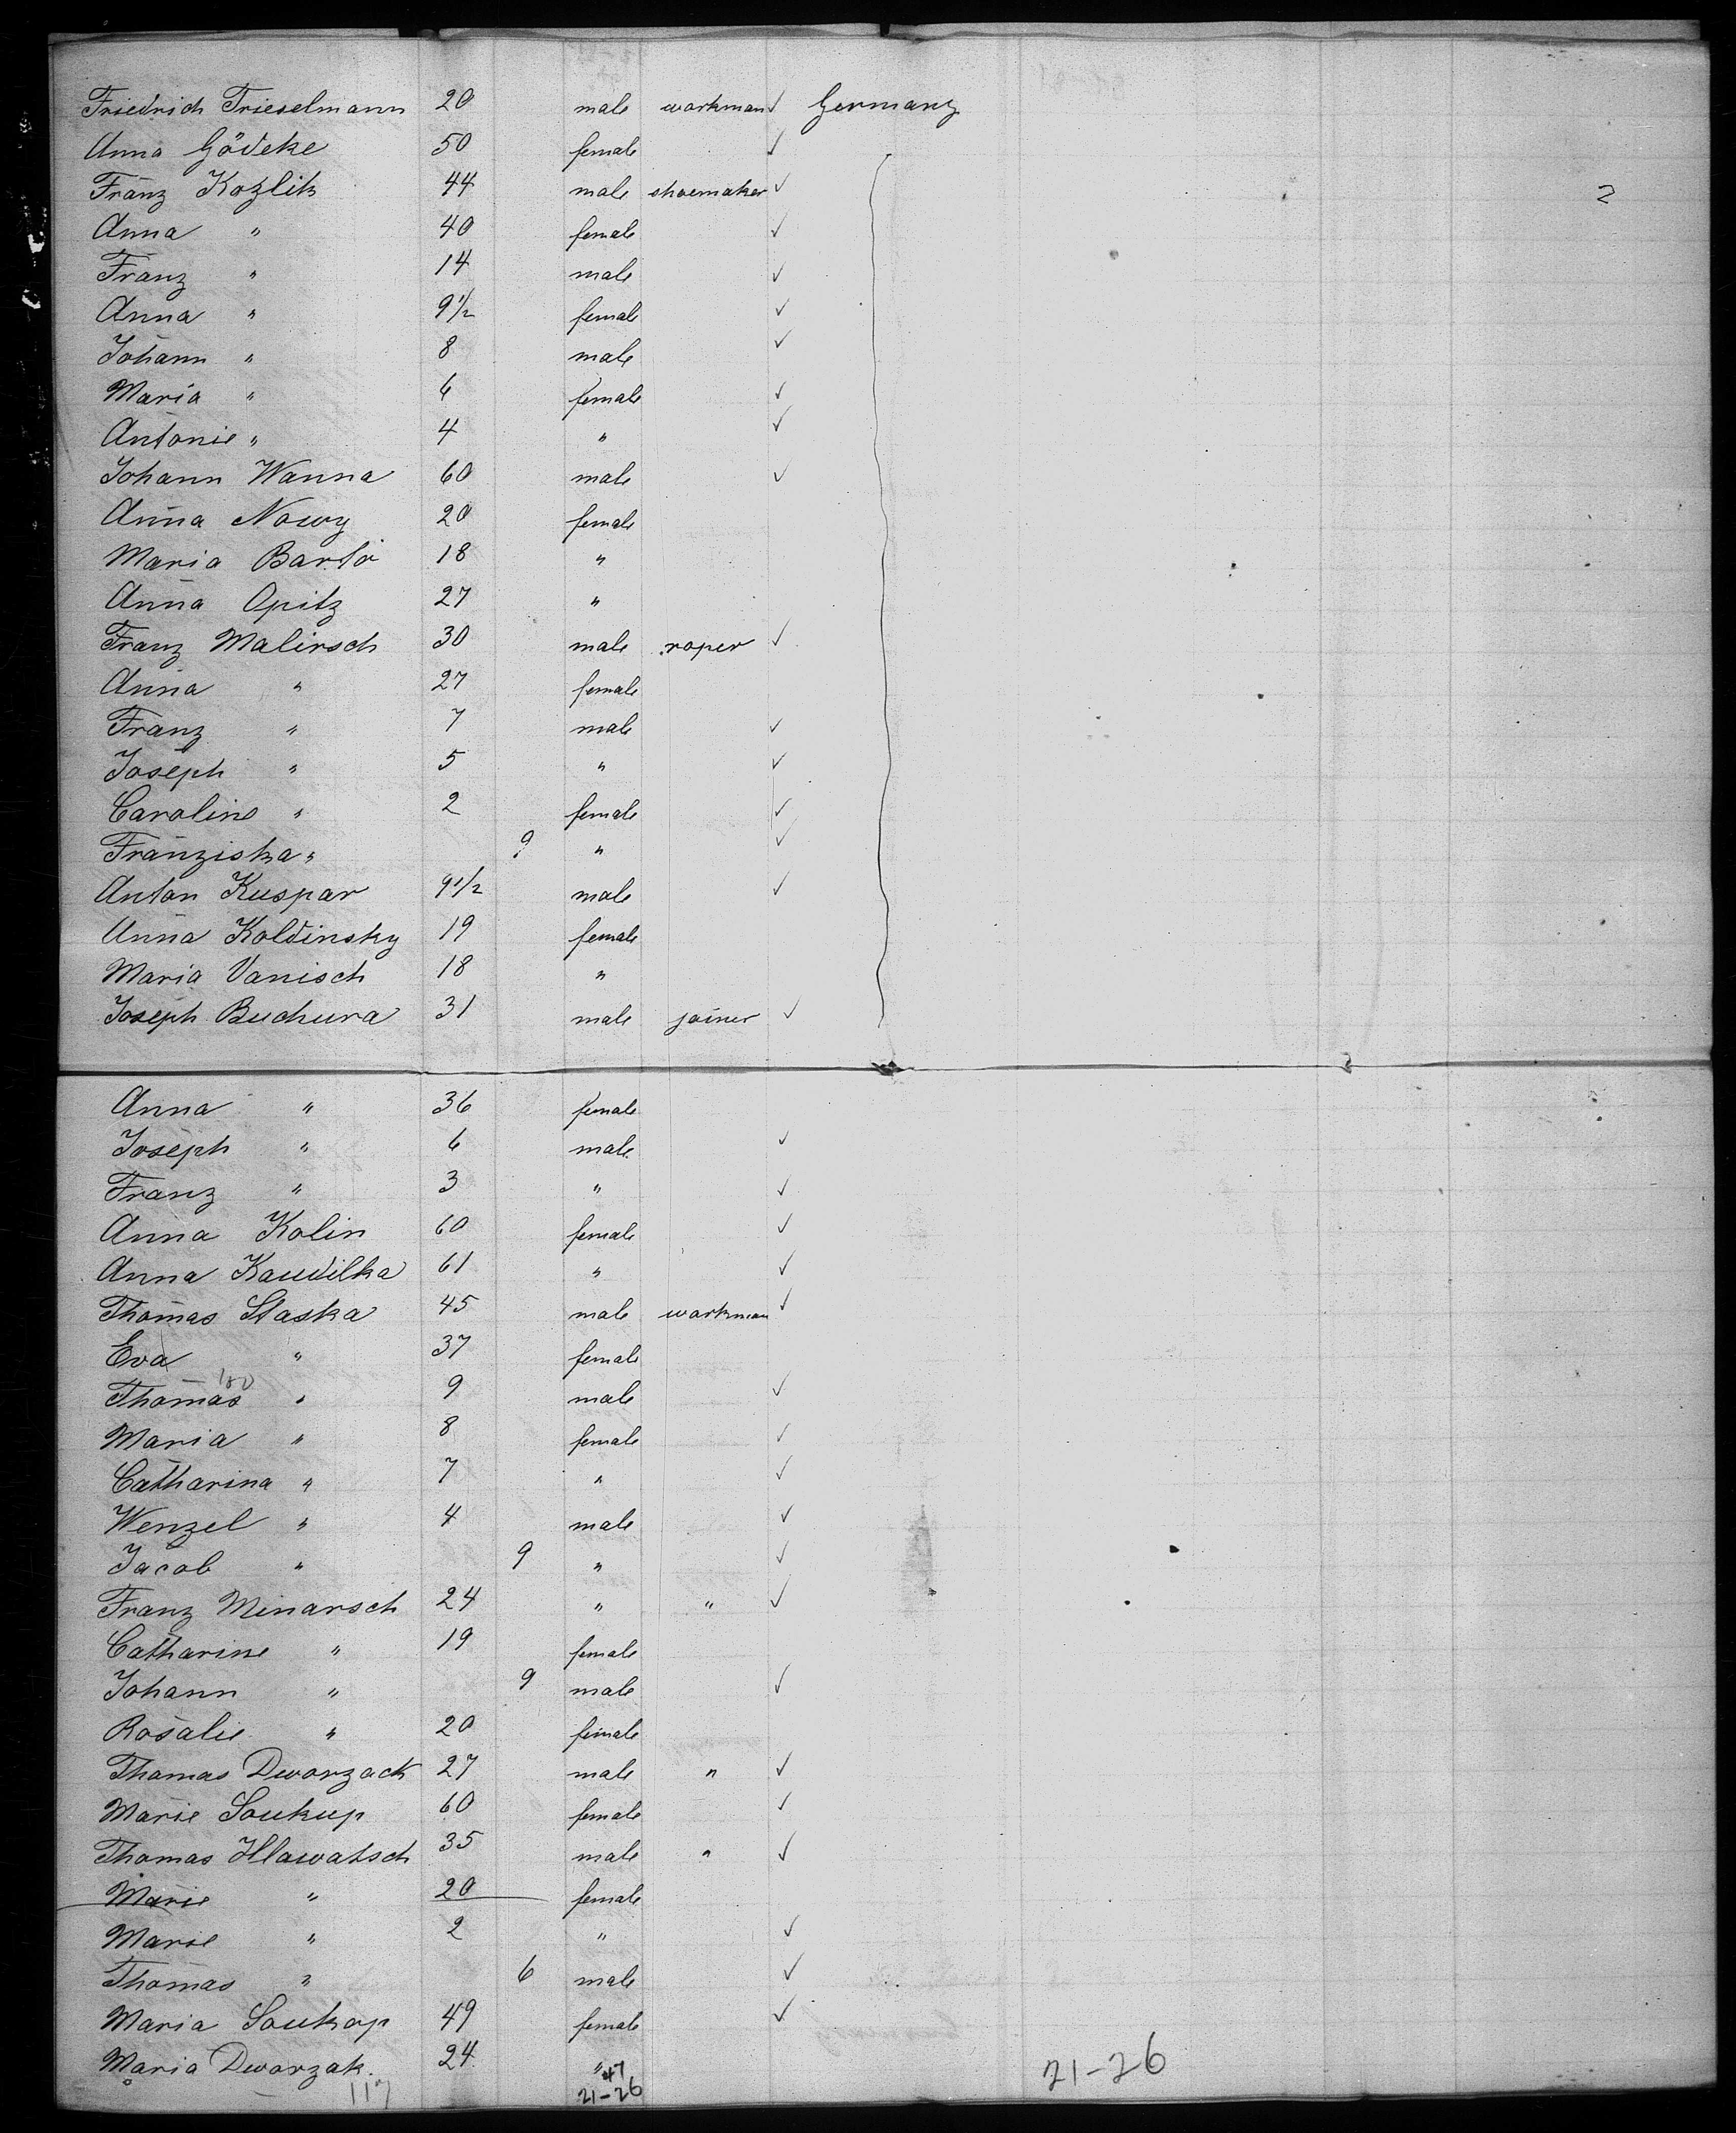 Friedrich Trieselmann 20 male workman ✓ Germany
Anna Gödeke 50 female ✓
Franz Kozlik 44 male shoemaker ✓ 2
Anna " 40 female ✓
Franz " 14 male ✓
Anna " 9 1/2 female ✓
Johann " 8 male ✓
Maria " 6 female ✓
Antonie " 4 " ✓
Johann Wanna 60 male ✓
Anna Nowy 20 female
Maria Barta 18 "
Anna Opitz 27 "
Franz Malirsch 30 male roper ✓
Anna " 27 female
Franz " 7 male ✓
Joseph " 5 " ✓
Caroline " 2 female ✓
Franziska " 9 " ✓
Anton Kuspar 9 1/2 male ✓
Anna Koldinsky 19 female
Maria Vanisch 18 "
Joseph Buchura 31 male joiner ✓
Anna " 36 female
Joseph " 6 male ✓
Franz " 3 " ✓
Anna Kolin 60 female ✓
Anna Kaudilka 61 " ✓
Thomas Staska 45 male workman ✓
Eva " 37 female
Thomas " 9 male ✓
Maria " 8 female ✓
Catharina " 7 " ✓
Wenzel " 4 male ✓
Jacob " 9 " ✓
Franz Minarsch 24 " " ✓
Catharine " 19 female
Johann " 9 male ✓
Rosalie " 20 female
Thomas Dworzack 27 male " ✓
Marie Soukup 60 female ✓
Thomas Hlawatsch 35 male " ✓
Marie " 20 female
Marie " 2 " ✓
Thomas " 6 male ✓
Maria Soukop 49 female ✓
Maria Dworzak. 24 "
47
117 21-26 21-26